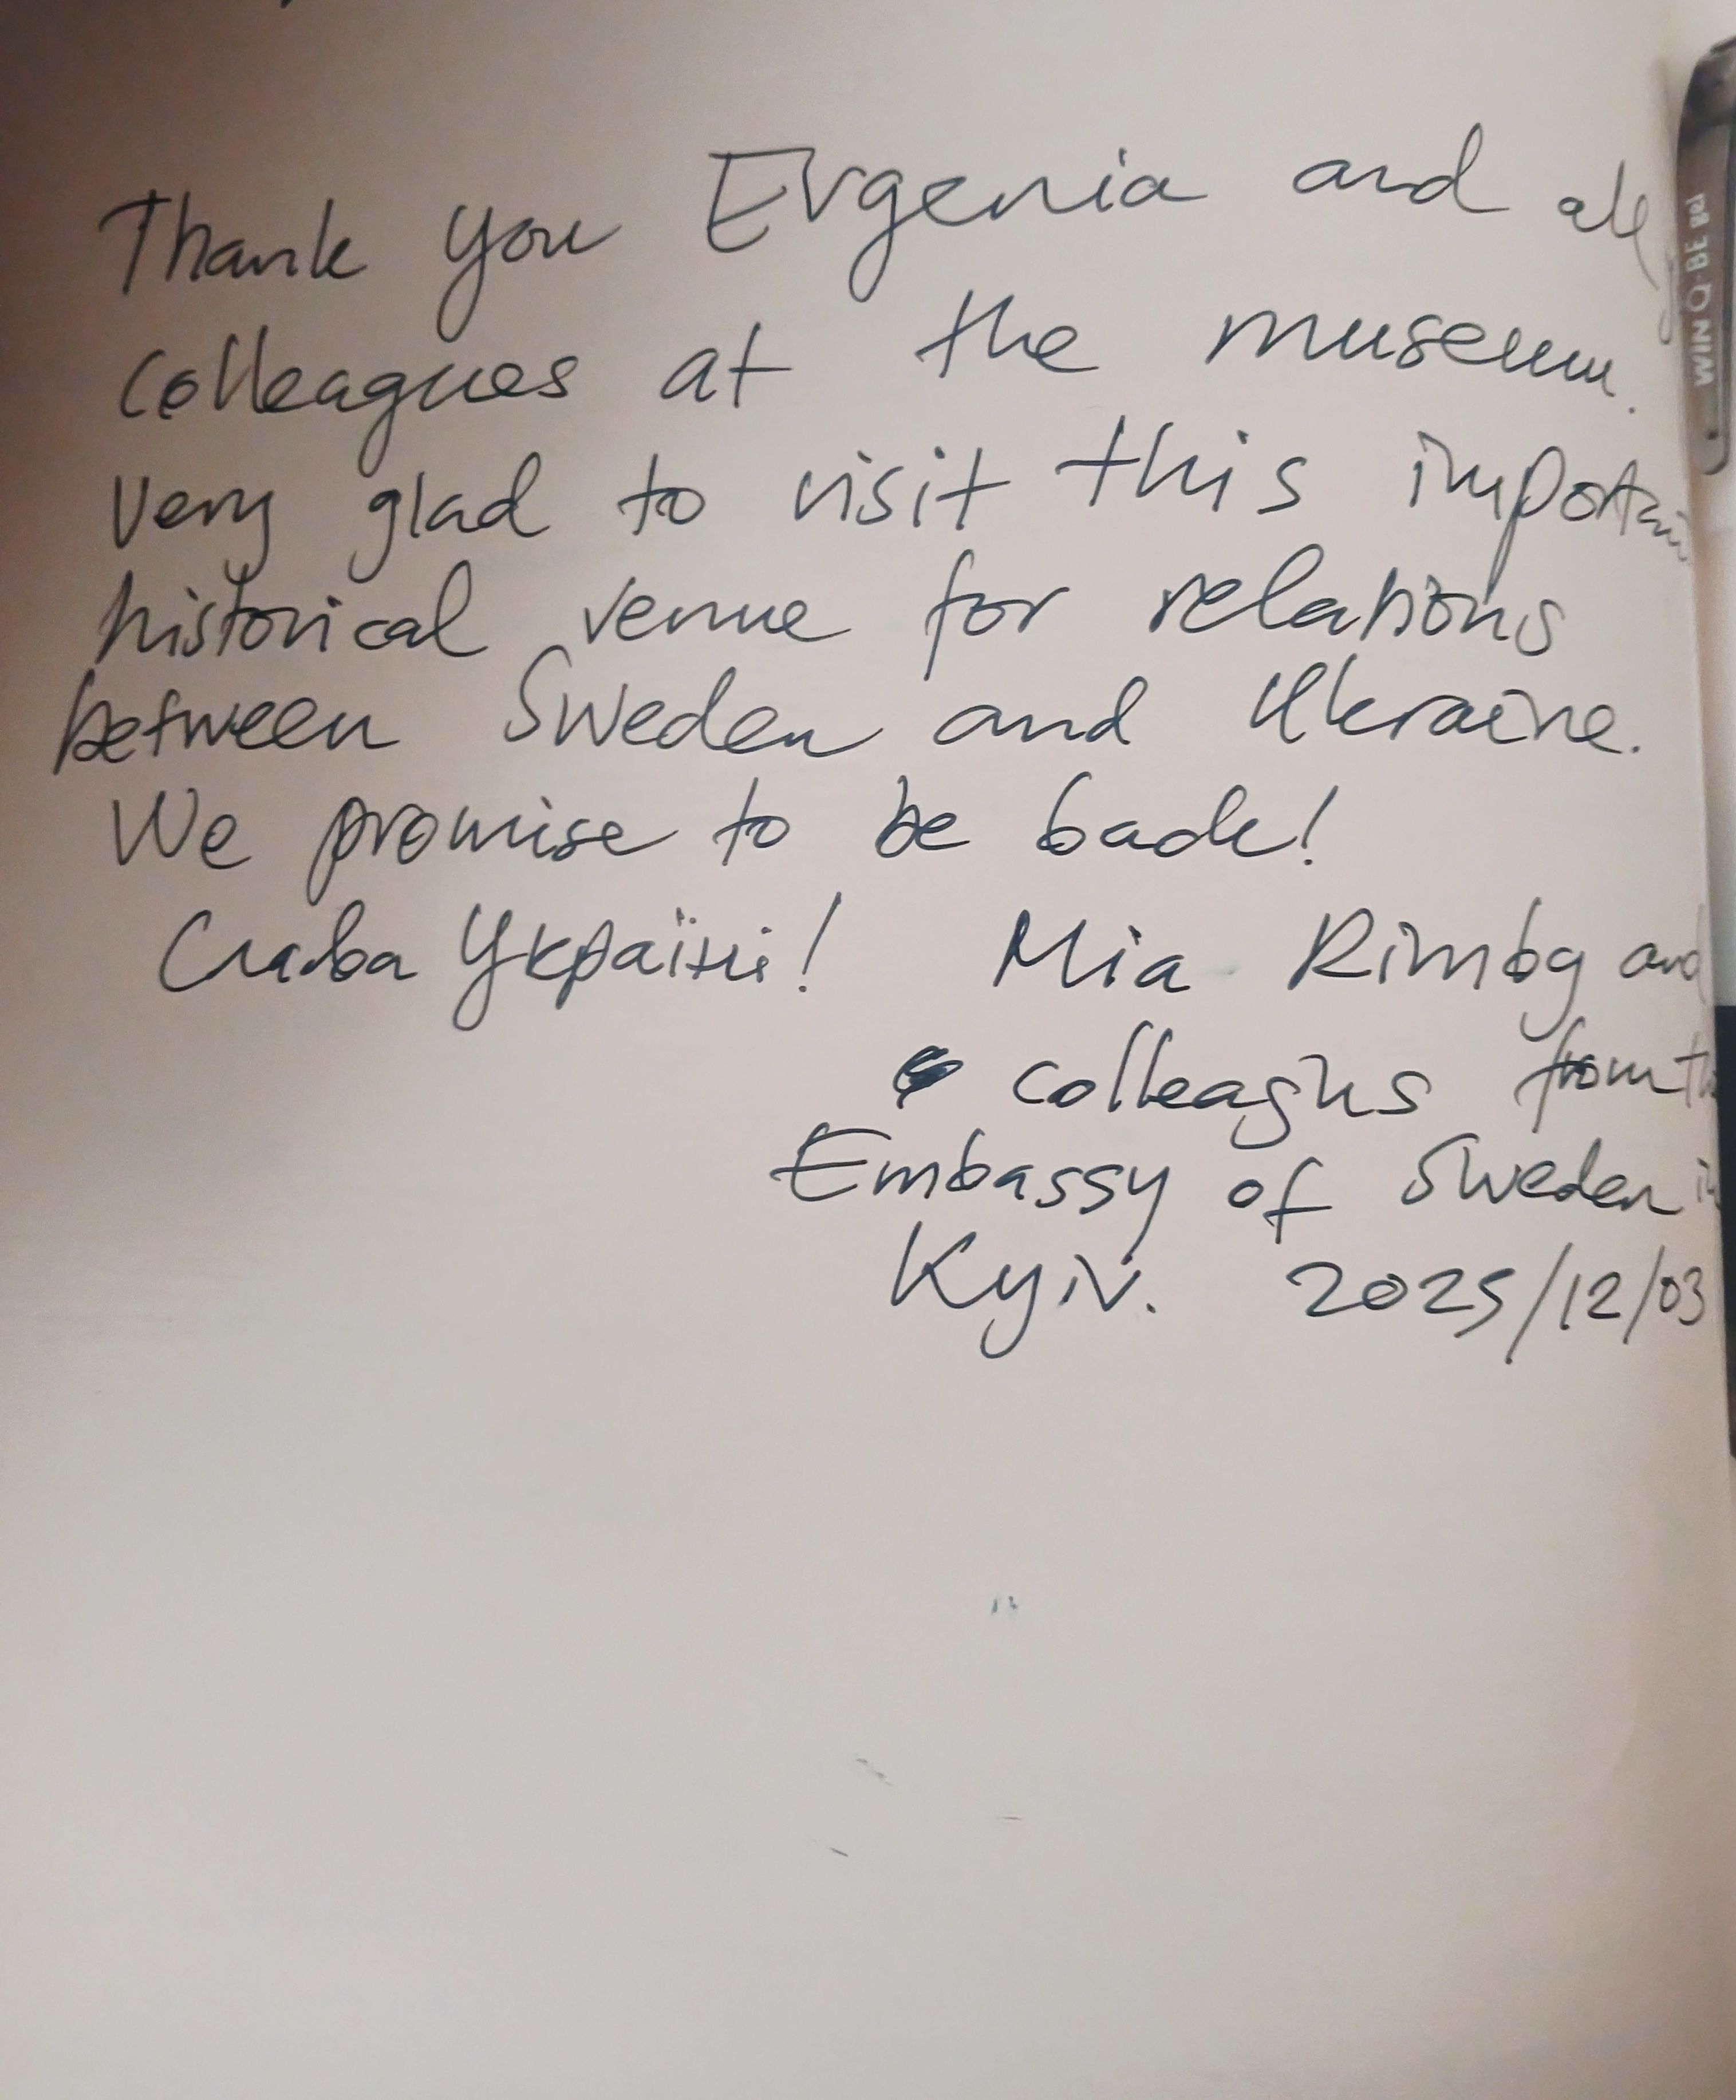 Thank you Evgenia and all
colleagues at the museum.
Very glad to visit this importan
historical venue for relations
between Sweden and Ukraine.
We promise to be back!
Слава Україні! Mia Rimbg and
colleaghs from th
Embassy of Sweden in
Kyiv. 2025/12/03
WIN Q·BE gel